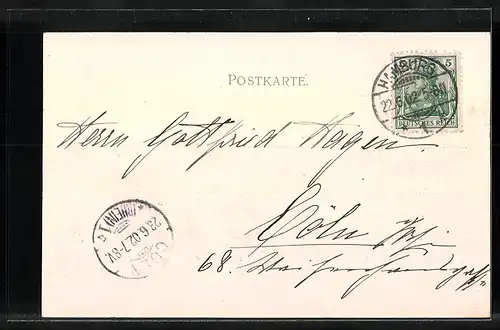 POSTKARTE.
HAMBURG
22.6.02
5
DEUTSCHES REICH
Herrn Gottfried Hagen.
Cöln a/Rh.
68. Waisenhausgasse
CÖLN
23.6.02.7-8V.
*(RHEIN)*1